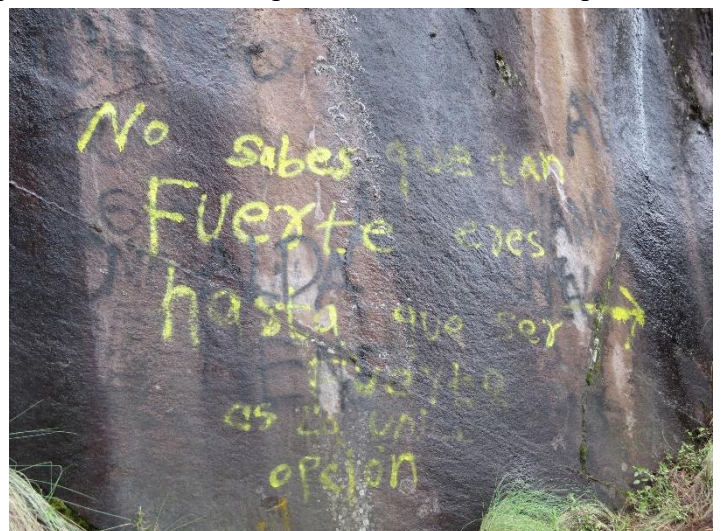 No sabes que tan
Fuerte eres
hasta que ser →
es la uni
opsión